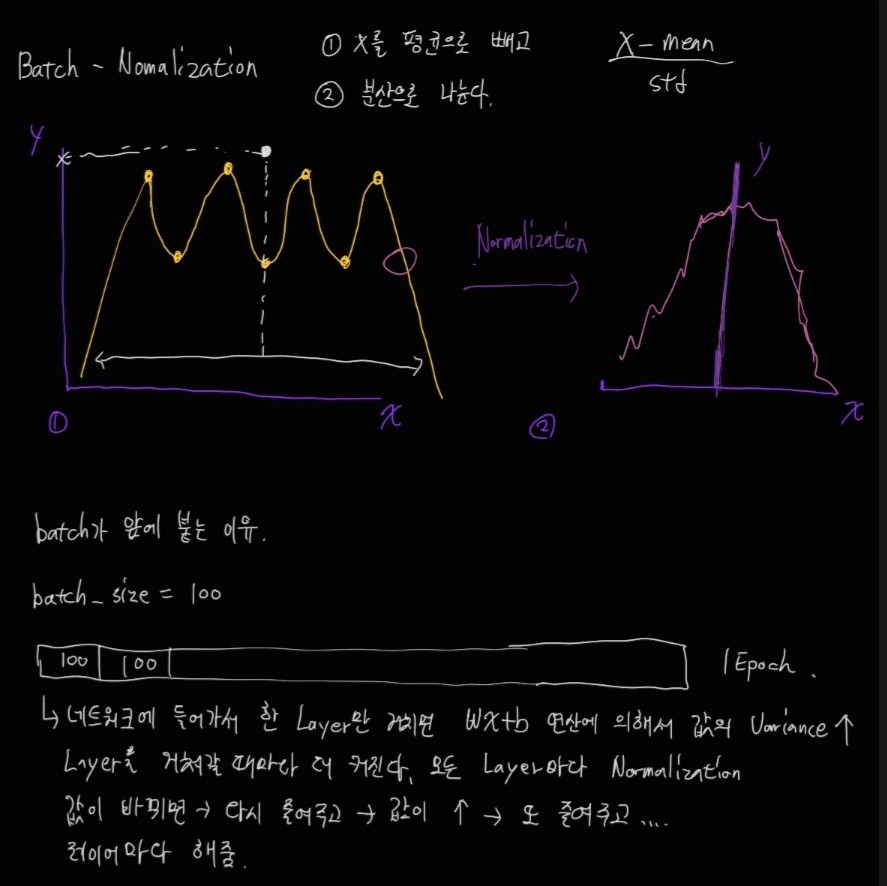 Batch - Nomalization
① X를 평균으로 빼고
② 분산으로 나눈다.
X - mean
std
y
x
①
Normalization
y
x
②
batch가 앞에 붙는 이유.
batch_size = 100
100 100
1 Epoch.
↳ 네트워크에 들어가서 한 Layer만 거치면 Wx+b 연산에 의해서 값의 Variance ↑
Layer를 거쳐갈 때마다 더 커진다. 모든 Layer마다 Normalization
값이 바뀌면 → 다시 줄여주고 → 값이 ↑ → 또 줄여주고 ....
레이어마다 해줌.